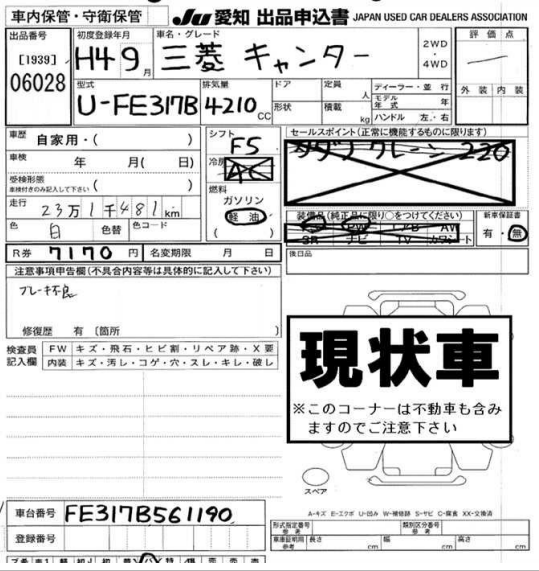 車内保管・守衛保管
JU 愛知 出品申込書 JAPAN USED CAR DEALERS ASSOCIATION
出品番号
[1939]
06028
初度登録年月
H4 9月
車名・グレード
三菱 キャンター
2WD
・
4WD
評価点
外装 内装
型式
U-FE317B
排気量
4210cc
ドア
形状
定員 人
積載 kg
ディーラー・並行
モデル年式 年
ハンドル 左・右
車歴 自家用・( )
車検 年 月( 日)
受検形態
車検付きのみ記入して下さい ( )
走行
23万1千481km
色 白 色替 色コード
R券 7170円 名変期限 月 日
シフト
F5
冷房
AC
燃料
ガソリン
軽油
( )
セールスポイント(正常に機能するものに限ります)
タダノ クレーン 220
装備品(純正品に限り○をつけてください)
PS PW エアB AW
SR ナビ TV カワシート
新車保証書
有・無
後日品
注意事項申告欄(不具合内容等は具体的に記入して下さい)
ブレーキ不良
修復歴 有 〔箇所
検査員記入欄
FW キズ・飛石・ヒビ割・リペア跡・X要
内装 キズ・汚レ・コゲ・穴・スレ・キレ・破レ
現状車
※このコーナーは不動車も含みますのでご注意下さい
スペア
A-キズ E-エクボ U-凹み W-補修跡 S-サビ C-腐食 XX-交換済
車台番号 FE317B561190
登録番号
形式指定番号 参考
類別区分番号 参考
車庫証明用 参考 長さ cm 幅 cm 高さ cm